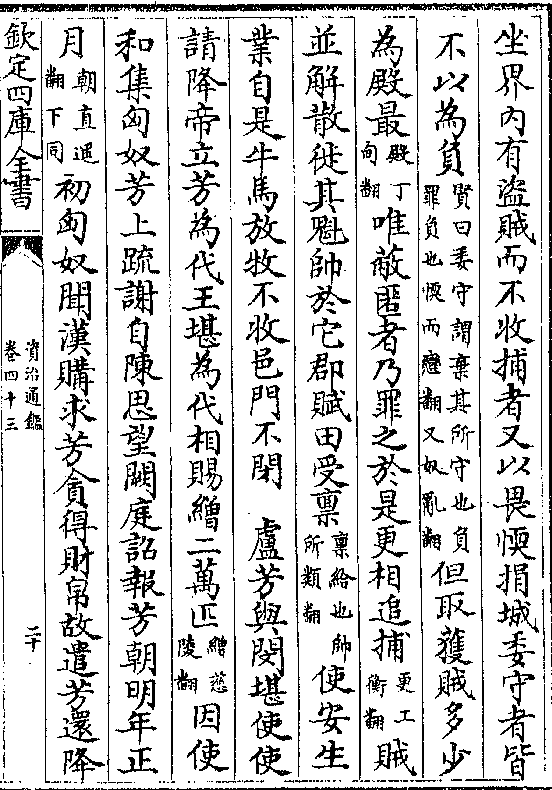 坐界內有盜賊而不收捕者又以畏愞捐城委守者皆
不以為負賢曰委守謂棄其所守也負罪負也愞而戀翻又奴亂翻但取獲賊多少
為殿最殿丁甸翻唯蔽匿者乃罪之於是更相追捕更工衡翻賊
並解散徙其魁帥於它郡賦田受稟稟給也帥所類翻使安生
業自是牛馬放牧不收邑門不閉 盧芳與閔堪使使
請降帝立芳為代王堪為代相賜繒二萬匹繒慈陵翻因使
和集匈奴芳上疏謝自陳思望闕庭詔報芳朝明年正
月朝直遥翻下同初匈奴聞漢購求芳貪得財帛故遣芳還降
欽定四庫全書
資治通鑑
卷四十三
二十